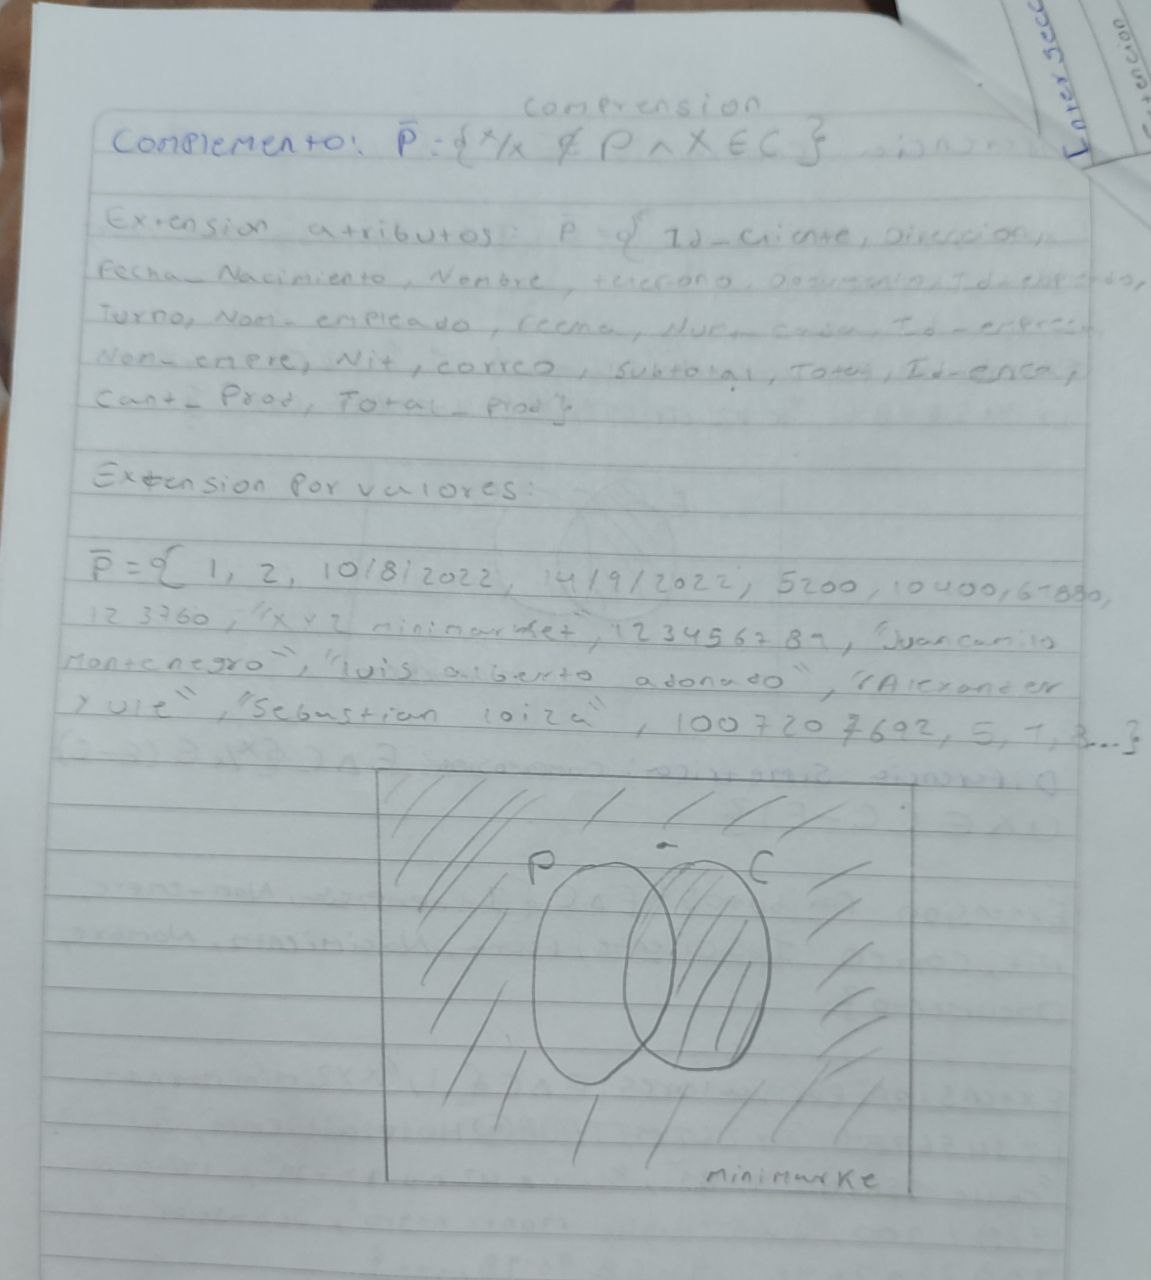 comprension
Complemento: P̅ = { x/x ∉ P ∧ X ∈ C }
Extension atributos: P = { Id_cliente, Direccion,
Fecha_Nacimiento, Nombre, telefono,
Turno, Nom_empleado, Num
Nit, correo, subtotal, Total,
Cant_Prod, Total_Prod}
Extension Por valores:
P̅ = { 1, 2, 10/8/2022, 14/9/2022, 5200, 10400,
123760, "xyz minimarket", "Juan camilo
Montenegro", "luis alberto adonado", "Alexander
Yule", "Sebastian loiza", 1007207692, 5,
P
C
minimarke
Intersecc